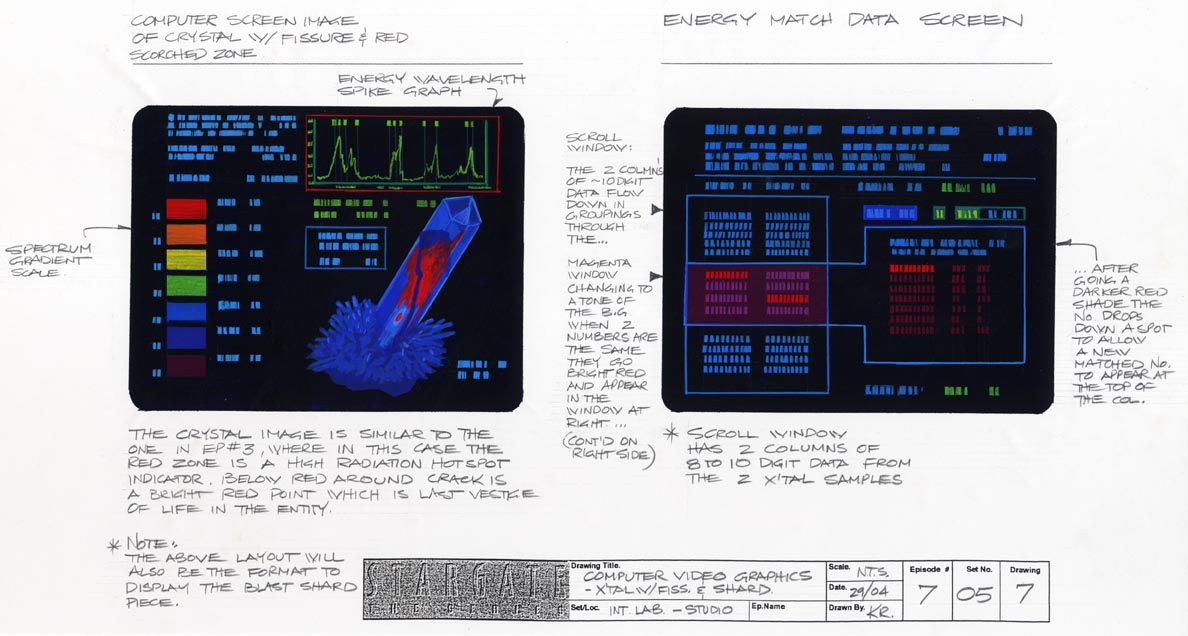 COMPUTER SCREEN IMAGE
OF CRYSTAL W/ FISSURE & RED
SCORCHED ZONE
ENERGY WAVELENGTH
SPIKE GRAPH
SPECTRUM
GRADIENT
SCALE.
THE CRYSTAL IMAGE IS SIMILAR TO THE
ONE IN EP#3, WHERE IN THIS CASE THE
RED ZONE IS A HIGH RADIATION HOTSPOT
INDICATOR. BELOW RED AROUND CRACK IS
A BRIGHT RED POINT WHICH IS LAST VESTIGE
OF LIFE IN THE ENTITY.
* NOTE:
THE ABOVE LAYOUT WILL
ALSO BE THE FORMAT TO
DISPLAY THE BLAST SHARD
PIECE.
ENERGY MATCH DATA SCREEN
SCROLL
WINDOW:
THE 2 COLMNS
OF ~10 DIGIT
DATA FLOW
DOWN IN
GROUPINGS
THROUGH
THE...
MAGENTA
WINDOW
CHANGING TO
A TONE OF
THE BIG
WHEN 2
NUMBERS ARE
THE SAME
THEY GO
BRIGHT RED
AND APPEAR
IN THE
WINDOW AT
RIGHT...
(CONT'D ON
RIGHT SIDE)
...AFTER
GOING A
DARKER RED
SHADE THE
NO. DROPS
DOWN A SPOT
TO ALLOW
A NEW
MATCHED NO.
TO APPEAR AT
THE TOP OF
THE COL.
* SCROLL WINDOW
HAS 2 COLUMNS OF
8 TO 10 DIGIT DATA FROM
THE 2 X'TAL SAMPLES
STARGATE
Drawing Title.
COMPUTER VIDEO GRAPHICS
- X'TAL W/FISS. & SHARD.
Set/Loc. INT. LAB. - STUDIO
Ep.Name
Scale. N.T.S.
Date. 29/04
Drawn By. KR.
Episode # 7
Set No. 05
Drawing 7